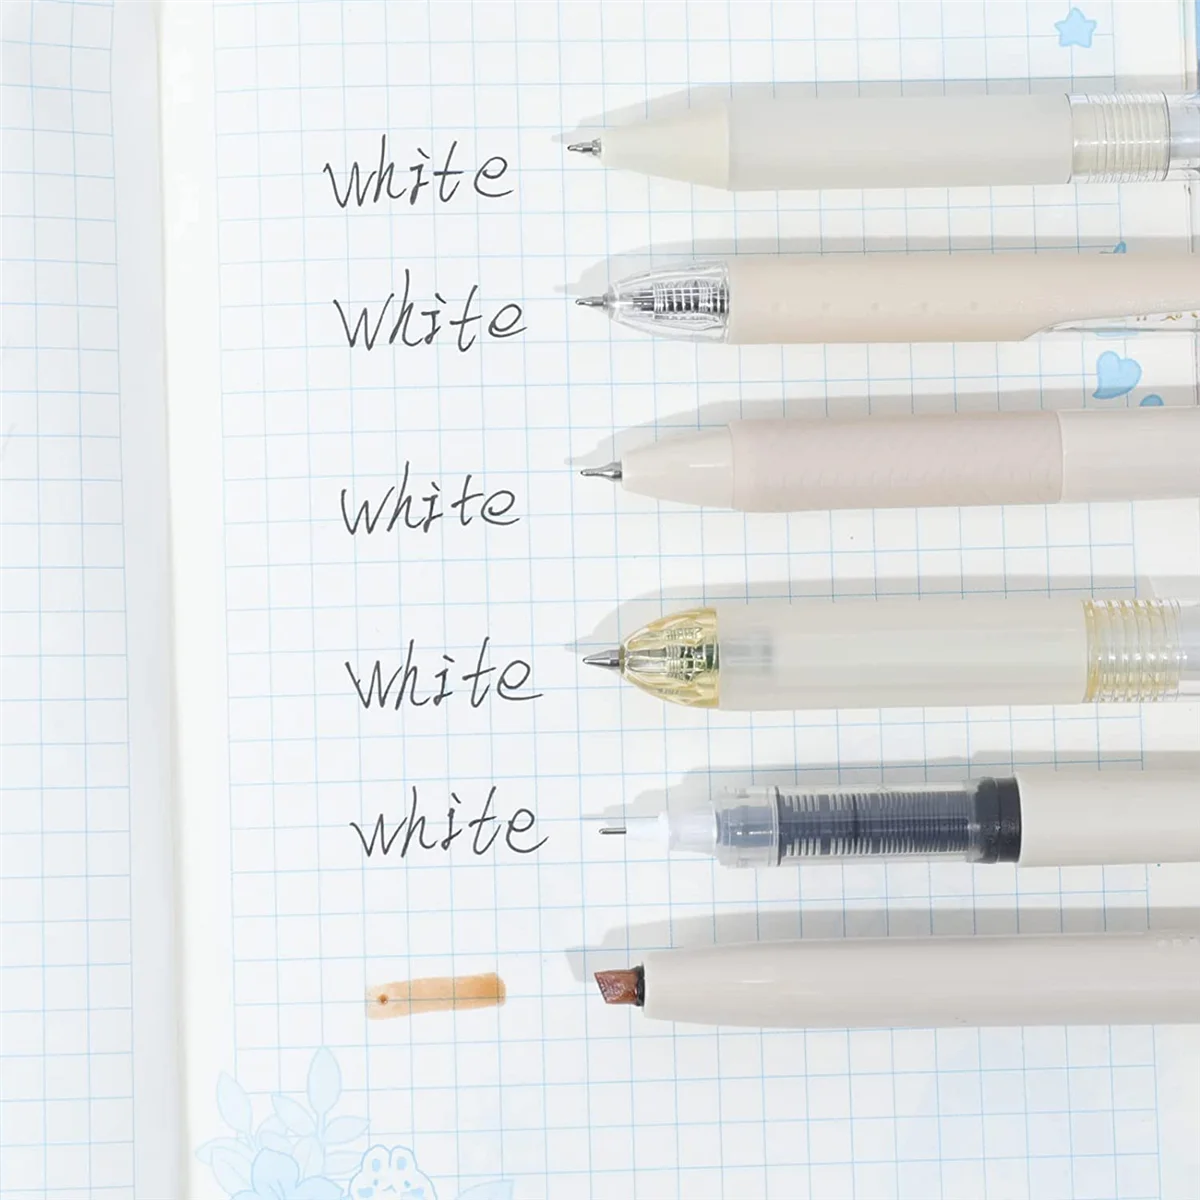 white
white
white
white
white